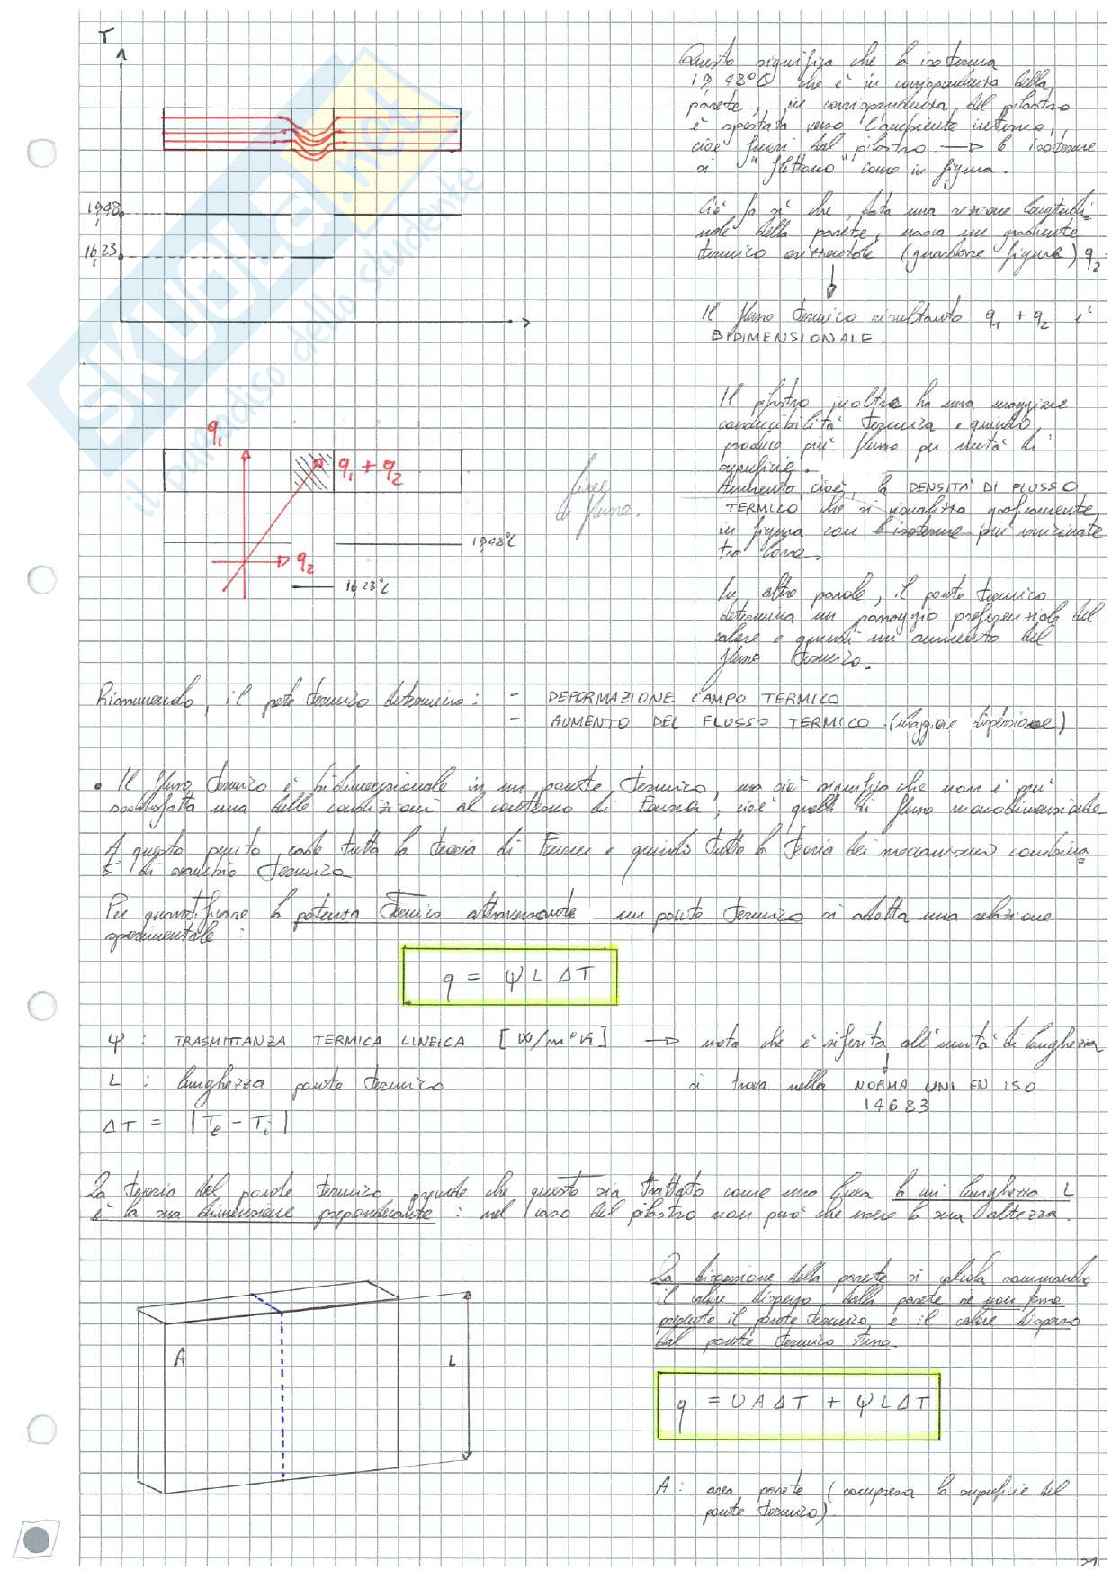 T
Questo significa che la isoterma
19,48°C che è in corrispondenza della
parete, in corrispondenza del pilastro
è spostata verso l'ambiente interno,
cioè fuori dal pilastro → le isoterme
si "flettono" come in figura.
19,48
16,23
Ciò fa sì che, data una sezione longitudi-
nale della parete, nasca un gradiente
termico orizzontale (guardare figura) q2
Il flusso termico risultante q1 + q2 è
BIDIMENSIONALE
SKUOLA.net
il paradiso dello studente
Il pilastro inoltre ha una maggiore
conducibilità termica e quindi
produce più flusso per unità di
superficie.
Aumenta cioè la DENSITA' DI FLUSSO
TERMICO che si visualizza graficamente
in figura con l'isoterme più ravvicinate
tra loro.
q1
q1 + q2
linee
di flusso.
q2
19,48°C
16,23°C
In altre parole, il ponte termico
determina un passaggio preferenziale del
calore e quindi un aumento del
flusso termico.
Riassumendo, il ponte termico determina: - DEFORMAZIONE CAMPO TERMICO
- AUMENTO DEL FLUSSO TERMICO (maggiore dispersione)
• Il flusso termico è bidimensionale in un ponte termico, ma ciò significa che non è più
soddisfatta una delle condizioni al contorno di Fourier, cioè quella di flusso monodimensionale
A questo punto, cade tutta la teoria di Fourier e quindi tutta la teoria dei meccanismi combina
ti di scambio termico
Per quantificare la potenza termica attraversante un ponte termico si adotta una relazione
sperimentale:
q = ψ L ΔT
ψ : TRASMITTANZA TERMICA LINEICA [W/m°K] → nota che è riferita all'unità di lunghezza
L : lunghezza ponte termico
si trova nella NORMA UNI EN ISO
14683
ΔT = |Te - Ti|
La teoria del ponte termico prevede che questo sia trattato come una linea la cui lunghezza L
è la sua dimensione preponderante : nel caso del pilastro non può che essere la sua altezza.
La dispersione della parete si calcola sommando
il calore disperso dalla parete se non fosse
presente il ponte termico, e il calore disperso
dal ponte termico stesso.
A
L
q = U A ΔT + ψ L ΔT
A : area parete (compresa la superficie del
ponte termico).
21